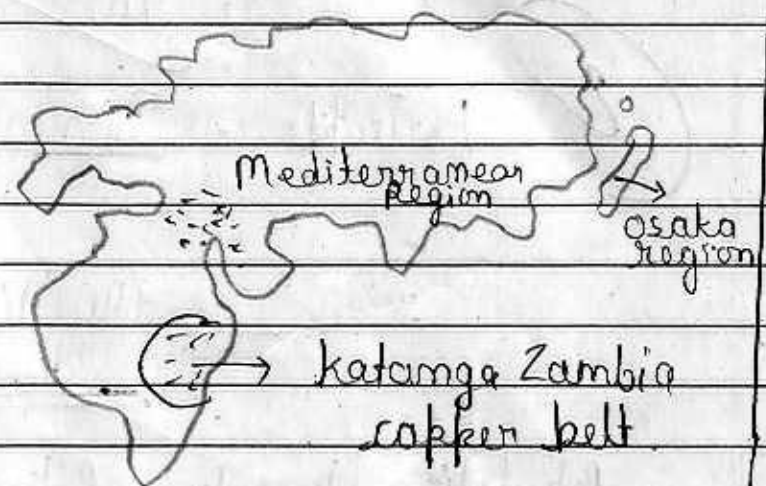 Mediterranean
Region
osaka
region
Katanga Zambia
copper belt